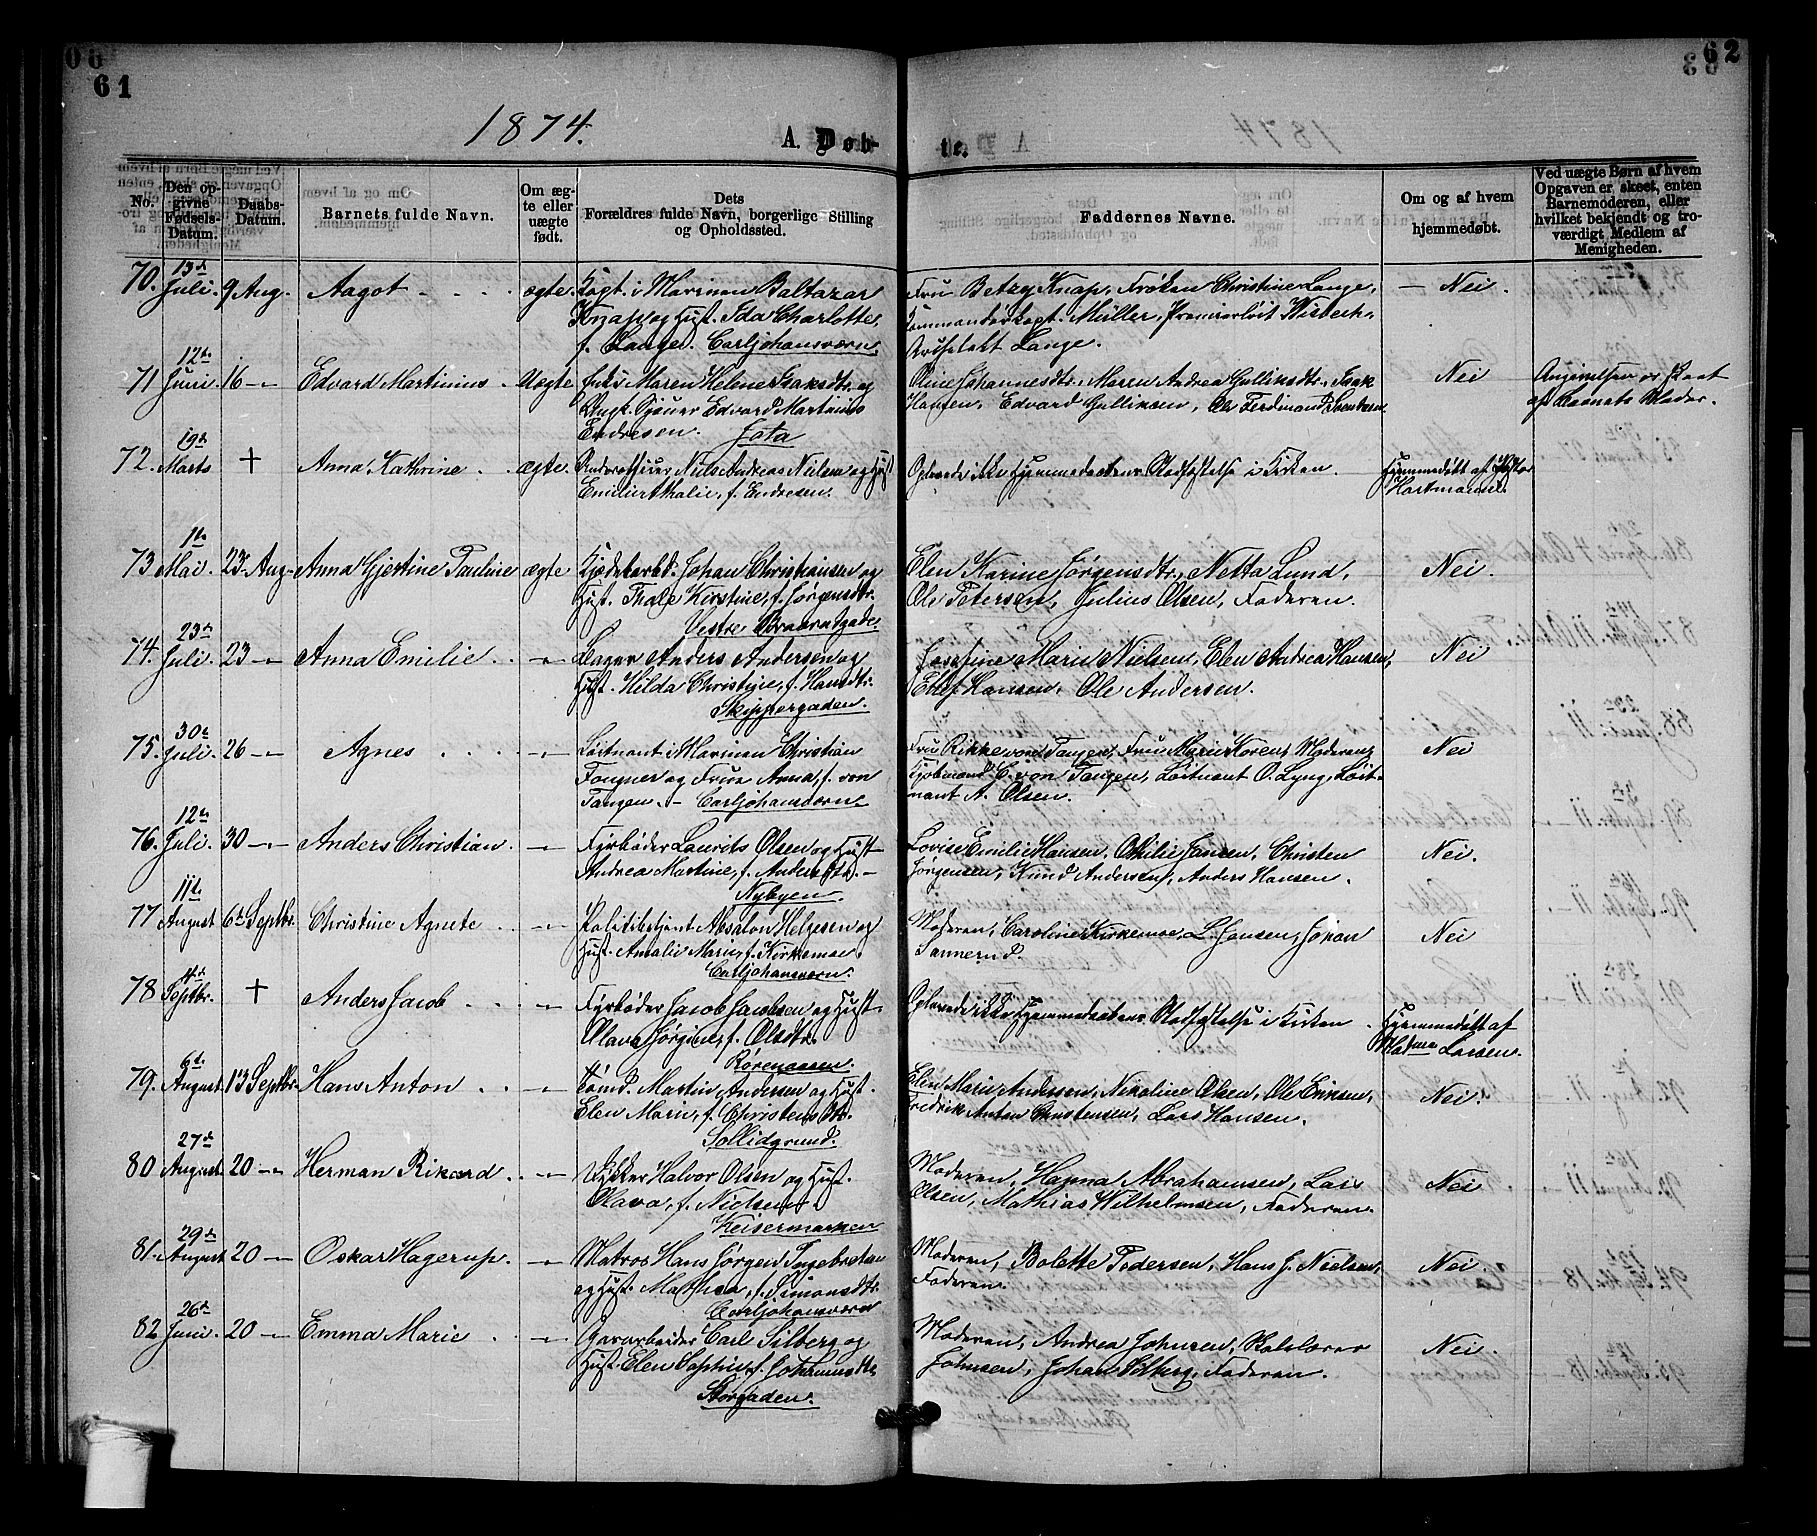 61
62
1874.
A. Døb-
te.
No.
Den op-
givne
Fødsels-
Datum.
Daabs-
Datum.
Barnets fulde Navn.
Om æg-
te eller
uægte
født.
Dets
Forældres fulde Navn, borgerlige Stilling
og Opholdssted.
Faddernes Navne.
Om og af hvem
hjemmedøbt.
Ved uægte Børn af hvem
Opgaven er skeet, enten
Barnemoderen, eller
hvilket bekjendt og tro-
værdigt Medlem af
Menigheden.
70. 13de Juli. 9 Aug. Aagot ægte.
Kapt. i Marinen Baltazar
Knap og Hust. Ida Charlotte,
f. Lange. Carljohansværn.
Fru Betzy Knap, Frøken Christine Lange,
Kommandørkapt. Müller, Premierløit Wisbech
Lange.
Nei.
71 12te Juni. 16 -"- Edvard Martinius Uægte
Maren Helene Isaksdtr. og
Ungk. Edvard Martinius
Endresen. Jota
Oline Johannesdtr., Maren Andrea Gulliksdtr., Isak
Hansen, Edvard Gullicksen, Ole Ferdinand Svendsen.
Nei
Angivelsen er skeet
af Barnets Moder.
72. 19de Marts + Anna Kathrine ægte.
Niels Andreas Nilsen og Hust
Emilie Athalie, f. Endresen.
Oplevede ikke Hjemmedaabens Stadfæstelse i Kirken.
Hjemmedøbt af
Hartmann.
73 1te Mai. 23 Aug. Anna Gjertine Pauline ægte
Johan Christiansen og
Hust. Thale Kirstine, f. Jørgensdtr.
Vestre Braarudgade.
Elen Karine Jørgensdtr., Netta Lund,
Ole Petersen, Julius Olsen, Faderen.
Nei.
74. 23de Juli. 23 -"- Anna Emilie -"-
Bager Anders Andersen og
Hust. Hilda Christine, f. Hansdtr.
Skippergaden.
Josefine Marie Nielsen, Elen Andrea Hansen,
Hansen, Ole Andersen.
Nei
75. 30te Juli. 26 -"- Agnes -"-
Løitnant i Marinen Christian
Fougner og Frue Anna, f. von
Tangen. - Carljohansværn.
Fru Rikke von Tangen, Fru Marie Koren, Moderen,
Kjøbmand C. von Tangen, Løitnant O. Lyng, Løit-
nant A. Olsen.
Nei
76. 12te Juli. 30 -"- Anders Christian -"-
Fyrbøder Laurits Olsen og Hust
Andrea Martine, f. Andersdtr. -
Nybyen.
Lovise Emilie Hansen, Othilie Jansen, Christen
Jørgensen, Knud Andersen, Anders Hansen.
Nei.
77 11te August 6te Septbr. Christine Agnete -"-
Politibetjent Absalon Helgesen og
Hust. Amalie Marie, f. Kirkemoe
Carljohansværn.
Moderen, Caroline Kirkemoe, L. Hansen, Johan
Tannerud.
Nei
78 4de Septbr. + Anders Jacob -"-
Fyrbøder Jacob Jacobsen og Hust.
Olava Jørgine, f. Olsdtr.
Rørenaasen.
Oplevede ikke Hjemmedaabens Stadfæstelse i Kirken.
Hjemmedøbt af
Madme Larsen.
79. 6te August 13 Septbr. Hans Anton -"-
Tømd. Martin Andersen og Hust.
Elen Marie, f. Christensdtr.
Sollidgrund.
Elen Marie Andersen, Nikoline Olsen, Ole Eriksen,
Fredrik Anton Christensen, Lars Hansen.
Nei.
80 27de August 20 -"- Herman Rikard -"-
Halvor Olsen og Hust.
Olava, f. Nielsen.
Keisermarken
Moderen, Hanna Abrahamsen, Lars
Olsen, Mathias Wilhelmsen, Faderen.
Nei
81. 29de August 20 -"- Oskar Hagerup. -"-
Matros Hans Jørgen Ingebretsen
og Hust. Mathea, f. Simonsdtr.
Carljohansværn
Moderen, Bolette Pedersen, Hans J. Nielsen,
Faderen.
Nei.
82 26de Juni. 20 -"- Emma Marie -"-
Gaardarbeider Carl Silberg og
Hust. Elen Sophie, f. Johannesdtr.
Storgaden.
Moderen, Andrea Johnsen,
Johnsen, Johan Silberg, Faderen.
Nei.